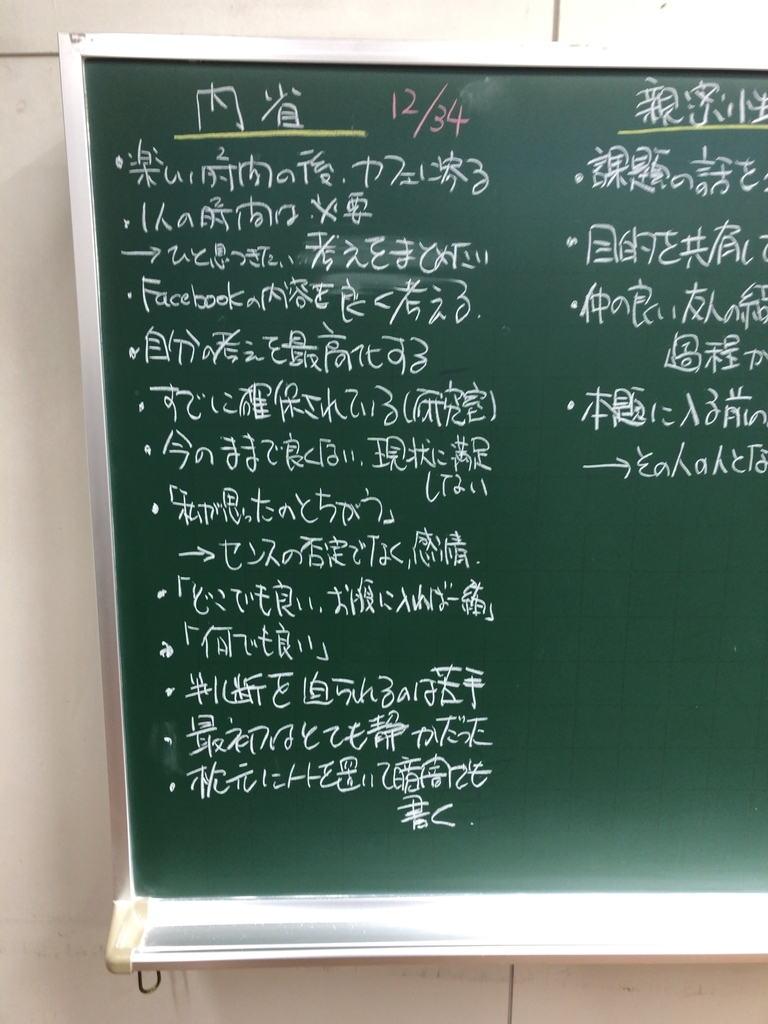 内省 12/34
・楽しい時間の後、カフェに寄る
・1人の時間は必要
→ひと思つきたい 考えをまとめたい
・Facebookの内容を良く考える.
・自分の考えを最高化する
・すでに確保されている(研究室)
・今のままで良くない、現状に満足
してない
・「私が思ったのとちがう」
→センスの否定でなく、感情.
・「どこでも良い、お腹に入れば一緒」
・「何でも良い」
・判断を迫られるのは苦手
・最初はとても静かだった
・枕元にノートを置いて暗闇でも
書く.
親密性
・課題の話を
・目的を共有して
・仲の良い友人の
過程が
・本題に入る前の
→その人の人とな